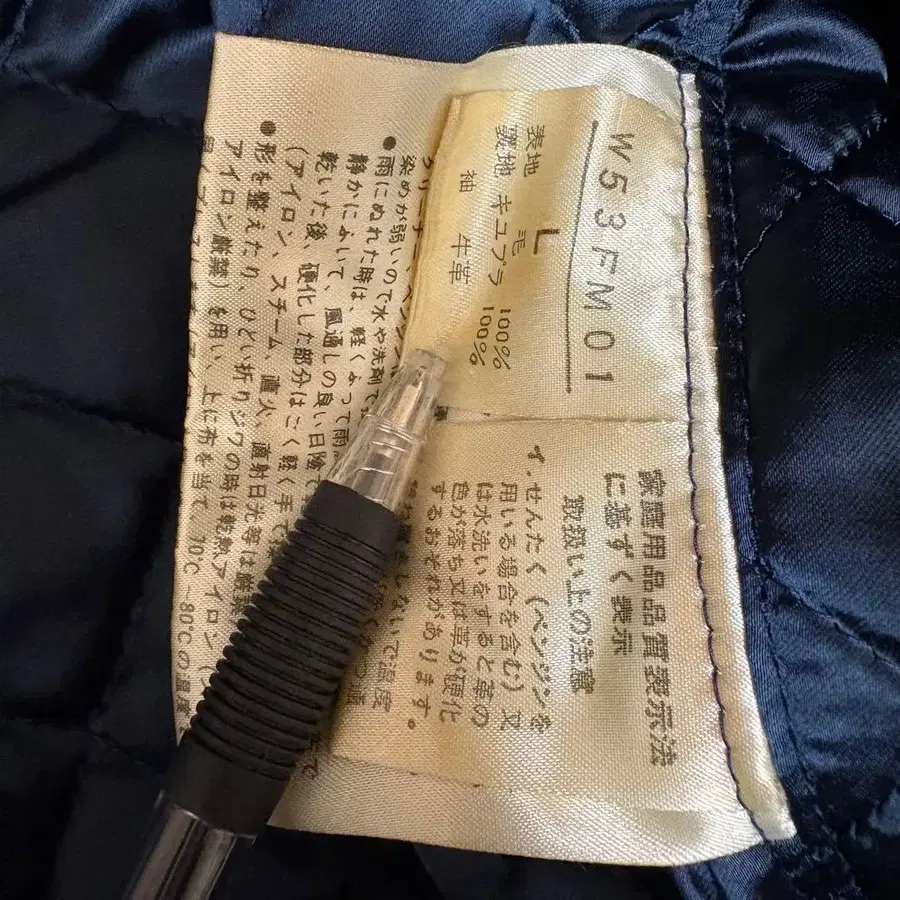 W53FM01
L
表地 毛 100%
裏地 キュプラ 100%
袖 牛革
家庭用品品質表示法
に基ずく表示
取扱い上の注意
1. せんたく (ベンジンを
用いる場合を含む) 又
は水洗いをすると革の
色が落ち又は革が硬化
するおそれがあります。
染めが弱いので水や洗剤で
● 雨にぬれた時は、軽くふって雨
静かにふいて、風通しの良い日陰で
乾いた後、硬化した部分はごく軽く手で
(アイロン、スチーム、直火、直射日光等は厳禁
● 形を整えたり、ひどい折りジワの時は乾熱アイロン (
アイロン厳禁) を用い、上に布を当て 70℃~80℃の温度